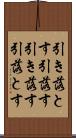 引き落と
す引き落す
引落とす